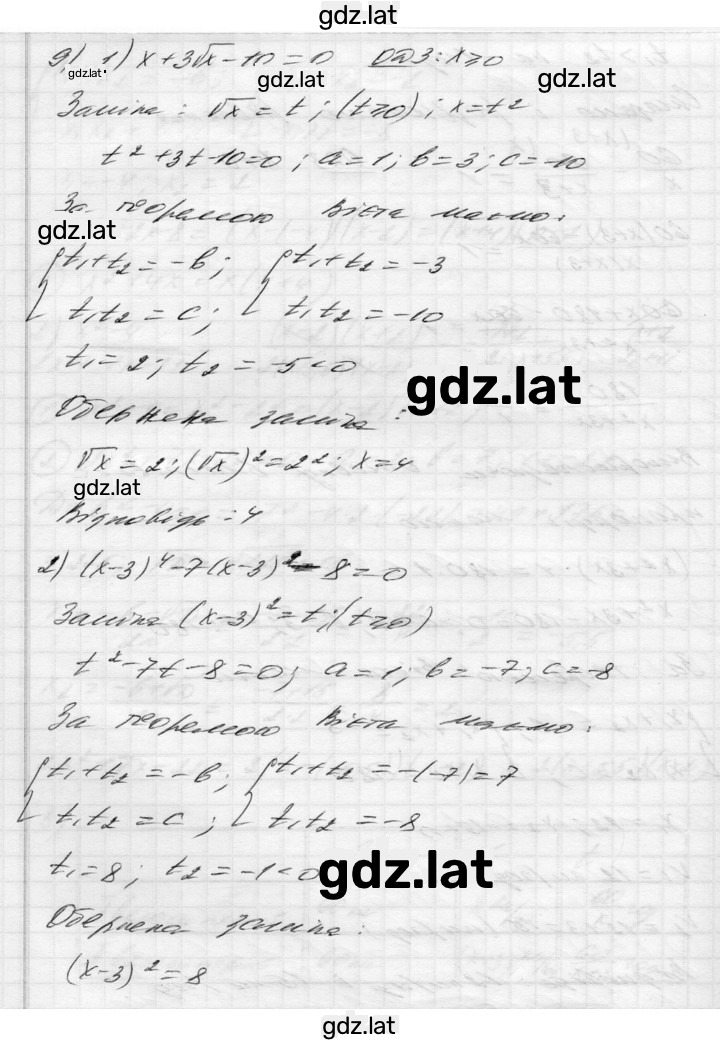 gdz.lat
9) 1) x+3√x-10=0 ОДЗ: x≥0
gdz.lat
gdz.lat
gdz.lat
Заміна: √x=t; (t≥0); x=t²
t²+3t-10=0; a=1; b=3; c=-10
За теоремою Вієта маємо:
gdz.lat
{t₁+t₂=-b; {t₁+t₂=-3
t₁t₂=c; t₁t₂=-10
t₁=2; t₂=-5<0
gdz.lat
Обернена заміна:
√x=2; (√x)²=2²; x=4
gdz.lat
Відповідь: 4
2) (x-3)⁴-7(x-3)²-8=0
Заміна (x-3)²=t; (t≥0)
t²-7t-8=0; a=1; b=-7; c=-8
За теоремою Вієта маємо:
{t₁+t₂=-b; {t₁+t₂=-(-7)=7
t₁t₂=c; t₁t₂=-8
t₁=8; t₂=-1<0
gdz.lat
Обернена заміна:
(x-3)²=8
gdz.lat